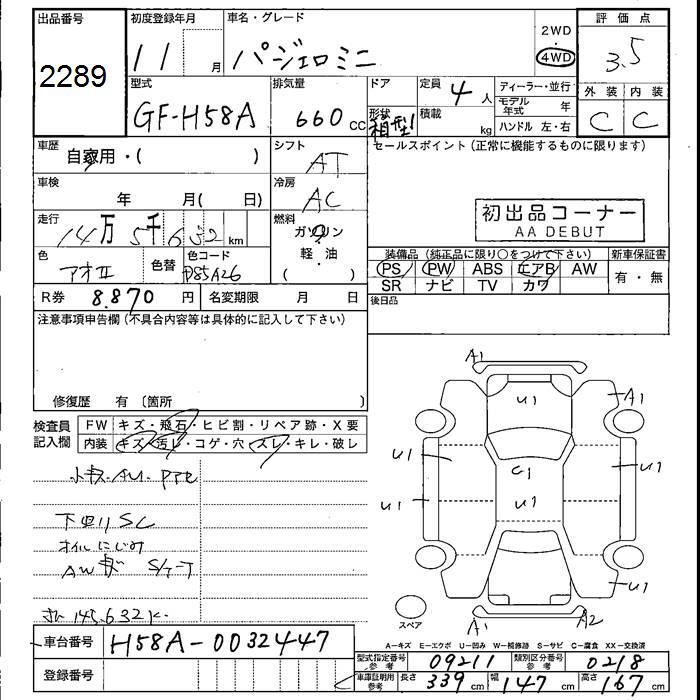 出品番号
2289
初度登録年月
11月
車名・グレード
パジェロミニ
2WD
4WD
評価点
3.5
型式
GF-H58A
排気量
660 cc
ドア
形状
箱型
定員
4人
積載
kg
ディーラー・並行
モデル年式 年
ハンドル 左・右
外装
内装
C
C
車歴
自家用・( )
シフト
AT
セールスポイント (正常に機能するものに限ります)
車検
年 月( 日)
冷房
AC
初出品コーナー
AA DEBUT
走行
14万5千632km
燃料
ガソリン
軽・油
色
アオII
色替
色コード
装備品 (純正品に限り○をつけて下さい)
新車保証書
PS PW ABS エアB AW
SR ナビ TV カワ
有・無
R券 8.870 円
名変期限 月 日
後日品
注意事項申告欄 (不具合内容等は具体的に記入して下さい)
修復歴 有 〔箇所 〕
検査員記入欄
FW キズ・飛石・ヒビ割・リペア跡・X要
内装 キズ・汚レ・コゲ・穴・スレ・キレ・破レ
下回りSC
オイルにじみ
145.632K
A1
U1
A1
U1
G1
U1
U1
U1
U1
A1
A2
スペア
A-キズ E-エクボ U-凹み W-補修跡 S-サビ C-腐食 XX-交換済
車台番号
H58A-0032447
登録番号
型式指定番号 参考
09211
類別区分番号 参考
0218
車庫証明用 参考
長さ 339 cm
幅 147 cm
高さ 167 cm